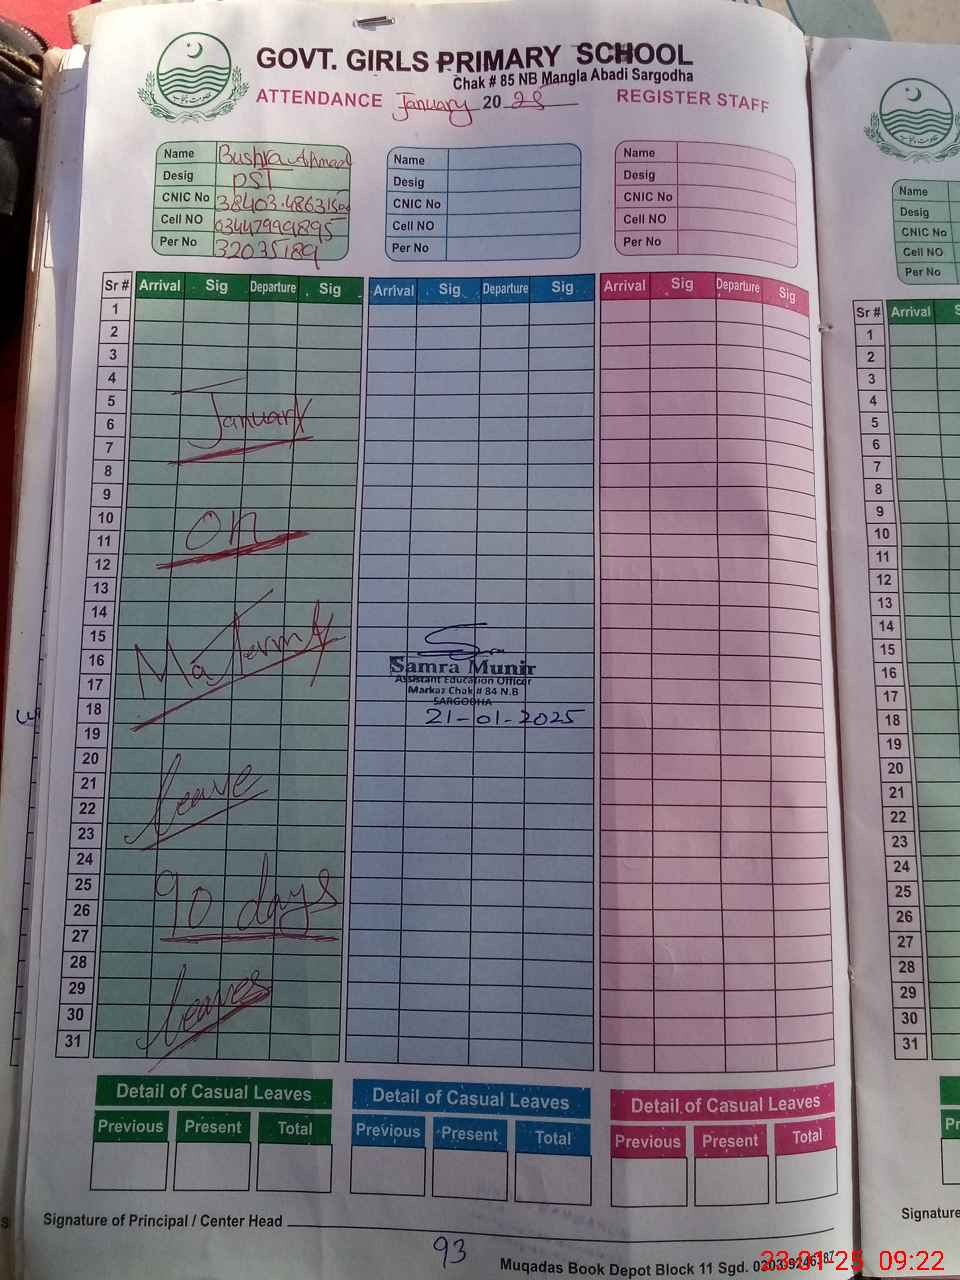 GOVT. GIRLS PRIMARY SCHOOL
Chak # 85 NB Mangla Abadi Sargodha
ATTENDANCE January 2025 REGISTER STAFF
Name Bushra Ahmad
Desig PST
CNIC No
Cell NO 03447999895
Per No 32035189
Name
Desig
CNIC No
Cell NO
Per No
Name
Desig
CNIC No
Cell NO
Per No
Sr # Arrival Sig Departure Sig Arrival Sig Departure Sig Arrival Sig Departure Sig
1
2
3
4
5
6
7
8
9
10
11
12
13
14
15
16
17
18
19
20
21
22
23
24
25
26
27
28
29
30
31
January
on
Maternity
leave
90 days
leaves
Samra Munir
Assistant Education Officer
Markaz Chak # 84 N.B
SARGODHA
21-01-2025
Detail of Casual Leaves Detail of Casual Leaves Detail of Casual Leaves
Previous Present Total Previous Present Total Previous Present Total
Signature of Principal / Center Head
93
Muqadas Book Depot Block 11 Sgd.
23-01-25 09:22
Name
Desig
CNIC No
Cell NO
Per No
Sr # Arrival
1
2
3
4
5
6
7
8
9
10
11
12
13
14
15
16
17
18
19
20
21
22
23
24
25
26
27
28
29
30
31